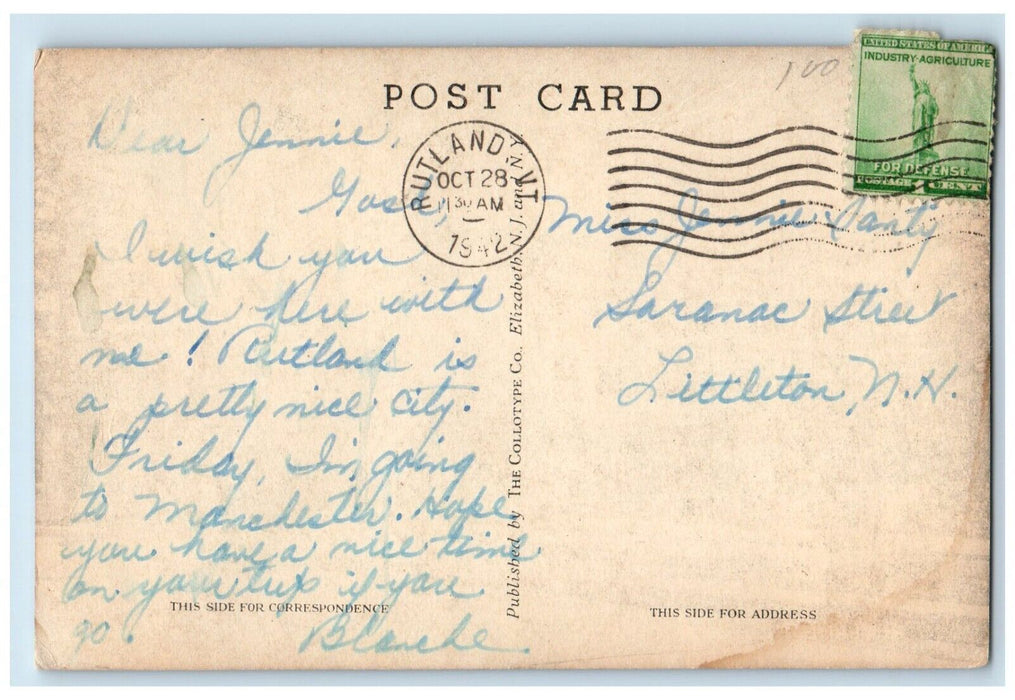 100
UNITED STATES OF AMERICA
INDUSTRY-AGRICULTURE
FOR DEFENSE
POSTAGE 1 CENT
POST CARD
RUTLAND, VT.
OCT 28
1130 AM
1942
Dear Jennie,
Gosh,
I wish you
were here with
me! Rutland is
a pretty nice city.
Friday, I'm going
to Manchester. Hope
you have a nice time
on your trip if you
go.
Blanche
Published by THE COLLOTYPE CO. Elizabeth, N.J. and N.Y.
Miss Jennie Santy
Saranac Street
Littleton, N.H.
THIS SIDE FOR CORRESPONDENCE
THIS SIDE FOR ADDRESS